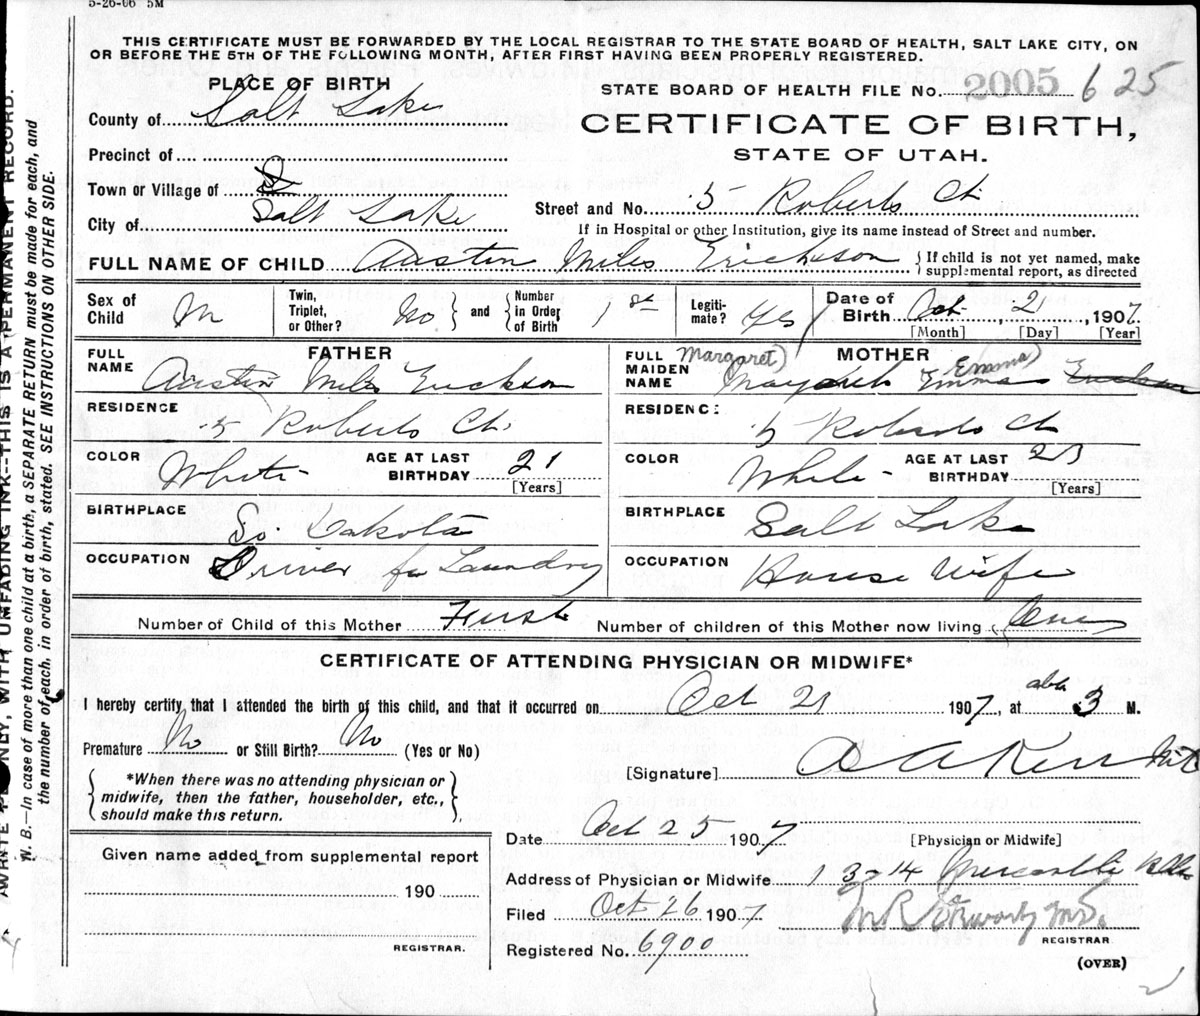 5-26-06 5M
THIS CERTIFICATE MUST BE FORWARDED BY THE LOCAL REGISTRAR TO THE STATE BOARD OF HEALTH, SALT LAKE CITY, ON
OR BEFORE THE 5TH OF THE FOLLOWING MONTH, AFTER FIRST HAVING BEEN PROPERLY REGISTERED.
PLACE OF BIRTH
STATE BOARD OF HEALTH FILE No. 2005 625
County of Salt Lake
CERTIFICATE OF BIRTH,
Precinct of
STATE OF UTAH.
Town or Village of
Street and No. 5 Roberts Ct.
City of Salt Lake
If in Hospital or other Institution, give its name instead of Street and number.
FULL NAME OF CHILD Austin Miles Erickson { If child is not yet named, make
supplemental report, as directed
Sex of Child M
Twin, Triplet, or Other? No } and { Number in Order of Birth 1st
Legiti- mate? Yes
Date of Birth Oct. 21, 1907
[Month] [Day] [Year]
FATHER
FULL NAME Austin Miles Erickson
RESIDENCE 5 Roberts Ct.
COLOR White AGE AT LAST BIRTHDAY 21
[Years]
BIRTHPLACE So. Dakota
OCCUPATION Driver for Laundry
MOTHER
FULL MAIDEN NAME (Margaret) (Emma)
Emma Erickson
RESIDENCE 5 Roberts Ct
COLOR White AGE AT LAST BIRTHDAY 23
[Years]
BIRTHPLACE Salt Lake
OCCUPATION House Wife
Number of Child of this Mother First Number of children of this Mother now living One
CERTIFICATE OF ATTENDING PHYSICIAN OR MIDWIFE*
I hereby certify, that I attended the birth of this child, and that it occurred on Oct 21 1907, at 3 M.
Premature No or Still Birth? No (Yes or No)
[Signature] A A Kerr
{ *When there was no attending physician or
midwife, then the father, householder, etc.,
should make this return. }
Date Oct 25 1907
[Physician or Midwife]
Given name added from supplemental report
190
REGISTRAR.
Address of Physician or Midwife 1 3-14 Mercantile Blk
Filed Oct 26 1907
REGISTRAR
Registered No. 6900
(OVER)
WITH UNFADING INK--THIS IS A PERMANENT RECORD.
N. B.—In case of more than one child at a birth, a SEPARATE RETURN must be made for each, and
the number of each, in order of birth, stated. SEE INSTRUCTIONS ON OTHER SIDE.